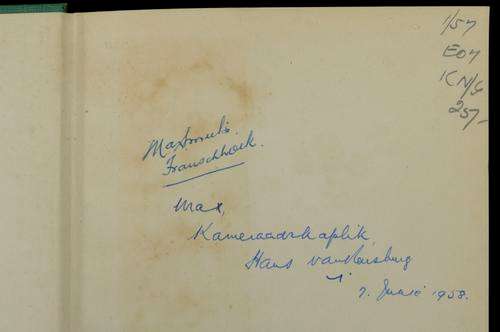 1/57
E04
KN/G
25/-
Franschhoek.
Max,
Kameraadskaplik,
Hans van Rensburg
7. Junie 1958.